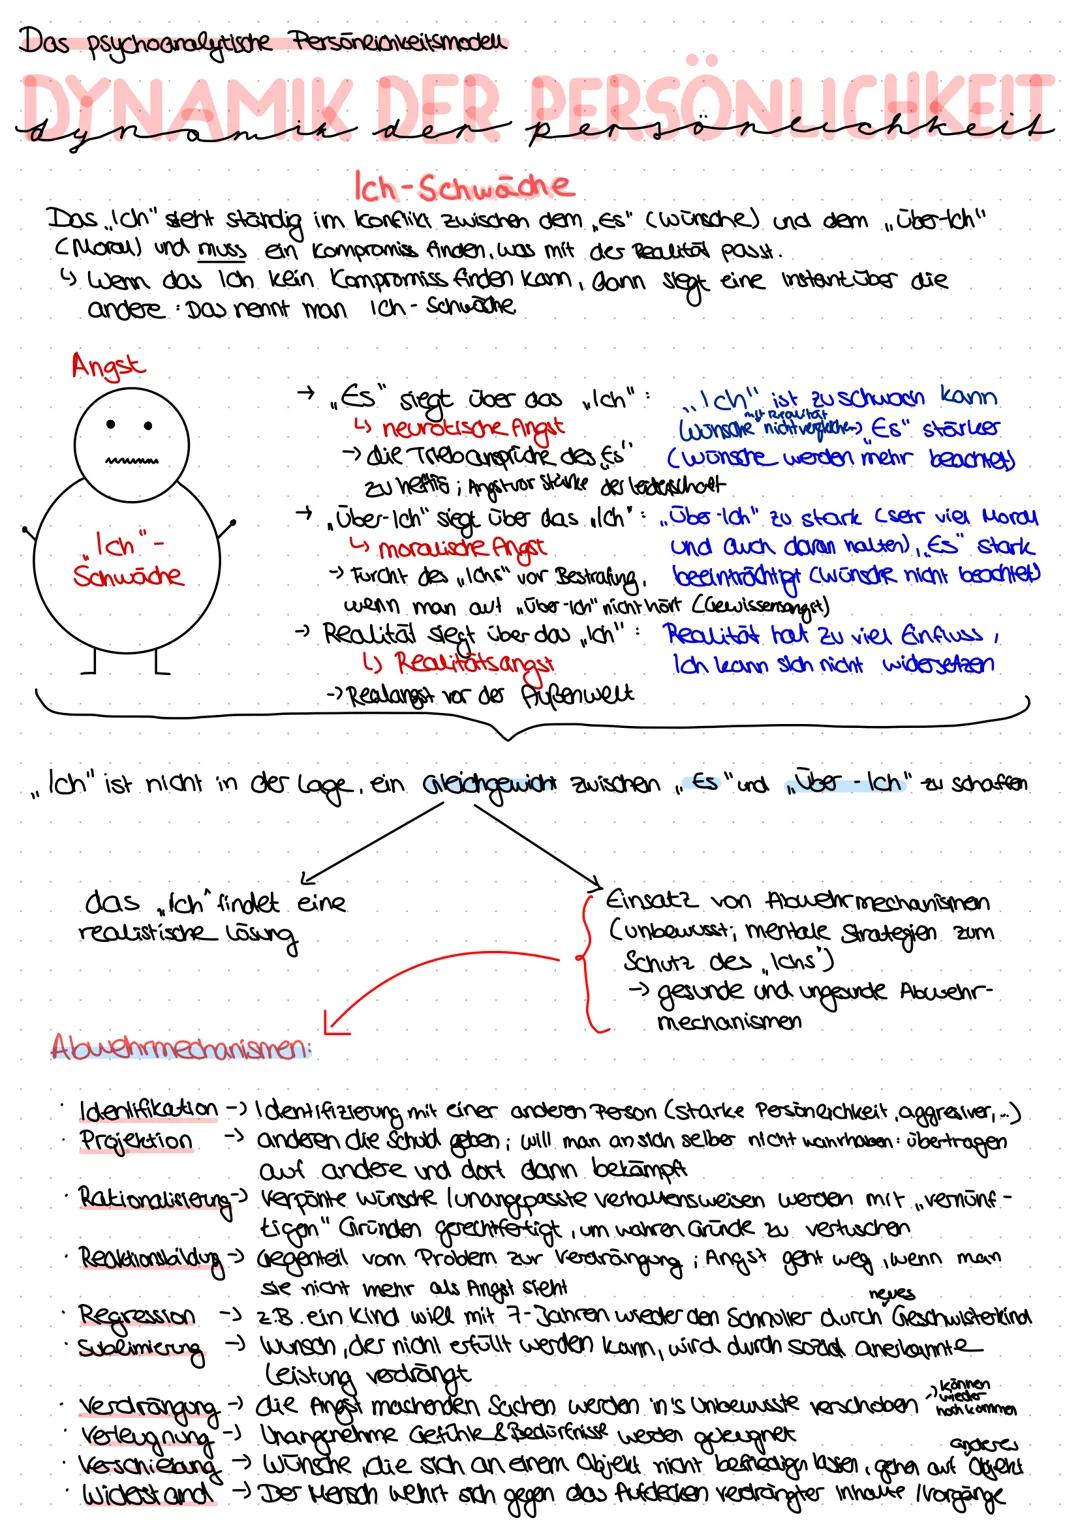 Das psychoanalytische Persönlichkeitsmodell
DYNAMIK DER PERSÖNLICHKEIT
dynamik der persönlichkeit
Ich-Schwäche
Das „Ich" steht ständig im Konflikt zwischen dem „Es" (Wünsche) und dem „Über-Ich"
(Moral) und muss ein Kompromiss finden, was mit der Realität passt.
↳ Wenn das Ich kein Kompromiss finden kann, dann siegt eine Instant über die
andere: Das nennt man Ich-Schwäche
Angst
„Ich"-
Schwäche
→ „Es" siegt über das „Ich": „Ich" ist zu schwach kann
↳ neurotische Angst Wünsche mit Realität nicht vergleichen → „Es" stärker
→ die Triebansprüche des „Es" (Wünsche werden mehr beachtet)
zu heftig; Angst vor Stärke der Leidenschaft
→ „Über-Ich" siegt über das „Ich": „Über-Ich" zu stark (sehr viel Moral
↳ moralische Angst und auch daran halten), „Es" stark
→ Furcht des „Ichs" vor Bestrafung, beeinträchtigt (Wünsche nicht beachtet)
wenn man auf „Über-Ich" nicht hört (Gewissensangst)
→ Realität siegt über das „Ich": Realität hat zu viel Einfluss,
↳ Realitätsangst Ich kann sich nicht widersetzen
→ Realangst vor der Außenwelt
„Ich" ist nicht in der Lage, ein Gleichgewicht zwischen „Es" und „Über-Ich" zu schaffen
das „Ich" findet eine
realistische Lösung
Einsatz von Abwehrmechanismen
(unbewusst; mentale Strategien zum
Schutz des „Ichs")
→ gesunde und ungesunde Abwehr-
mechanismen
Abwehrmechanismen:
· Identifikation → Identifizierung mit einer anderen Person (starke Persönlichkeit, aggresiver,...)
· Projektion → anderen die Schuld geben; will man an sich selber nicht wahrhaben: übertragen
auf andere und dort dann bekämpft
· Rationalisierung → Verpönte Wünsche / unangepasste Verhaltensweisen werden mit „vernünf-
tigen" Gründen gerechtfertigt, um wahren Gründe zu vertuschen
· Reaktionsbildung → Gegenteil vom Problem zur Verdrängung; Angst geht weg, wenn man
sie nicht mehr als Angst sieht
· Regression → z.B. ein Kind will mit 7-Jahren wieder den Schnuller durch neues Geschwisterkind
· Sublimierung → Wunsch, der nicht erfüllt werden kann, wird durch sozial anerkannte
Leistung verdrängt
· Verdrängung → die Angst machenden Sachen werden in's Unbewusste verschoben → können wieder hochkommen
· Verleugnung → Unangenehme Gefühle & Bedürfnisse werden geleugnet
· Verschiebung → Wünsche, die sich an einem Objekt nicht befriedigen lassen, gehen auf anderes Objekt
· Widerstand → Der Mensch wehrt sich gegen das Aufdecken verdrängter Inhalte / Vorgänge